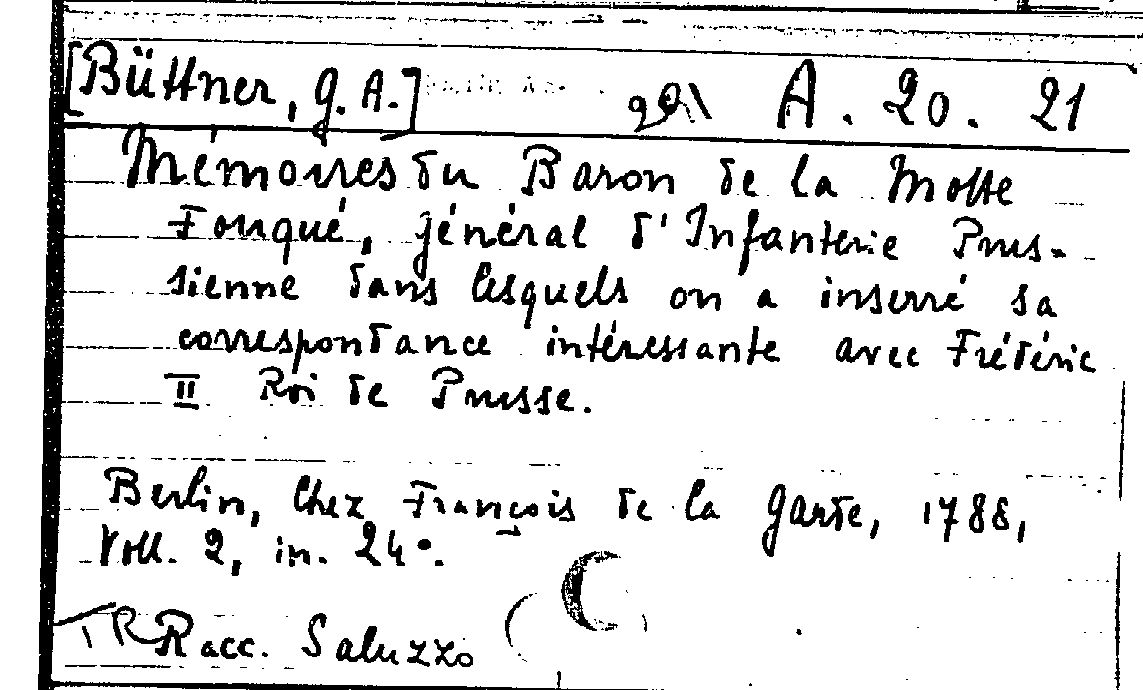 [Büttner, G. A.] A. 20. 21
Mémoires du Baron de la Motte
Fouqué, général d'Infanterie Prus-
sienne dans lesquels on a inserré sa
correspondance intéressante avec Frédéric
II Roi de Prusse.
Berlin, chez François de la Garde, 1788,
Voll. 2, in. 24°.
TR Racc. Saluzzo